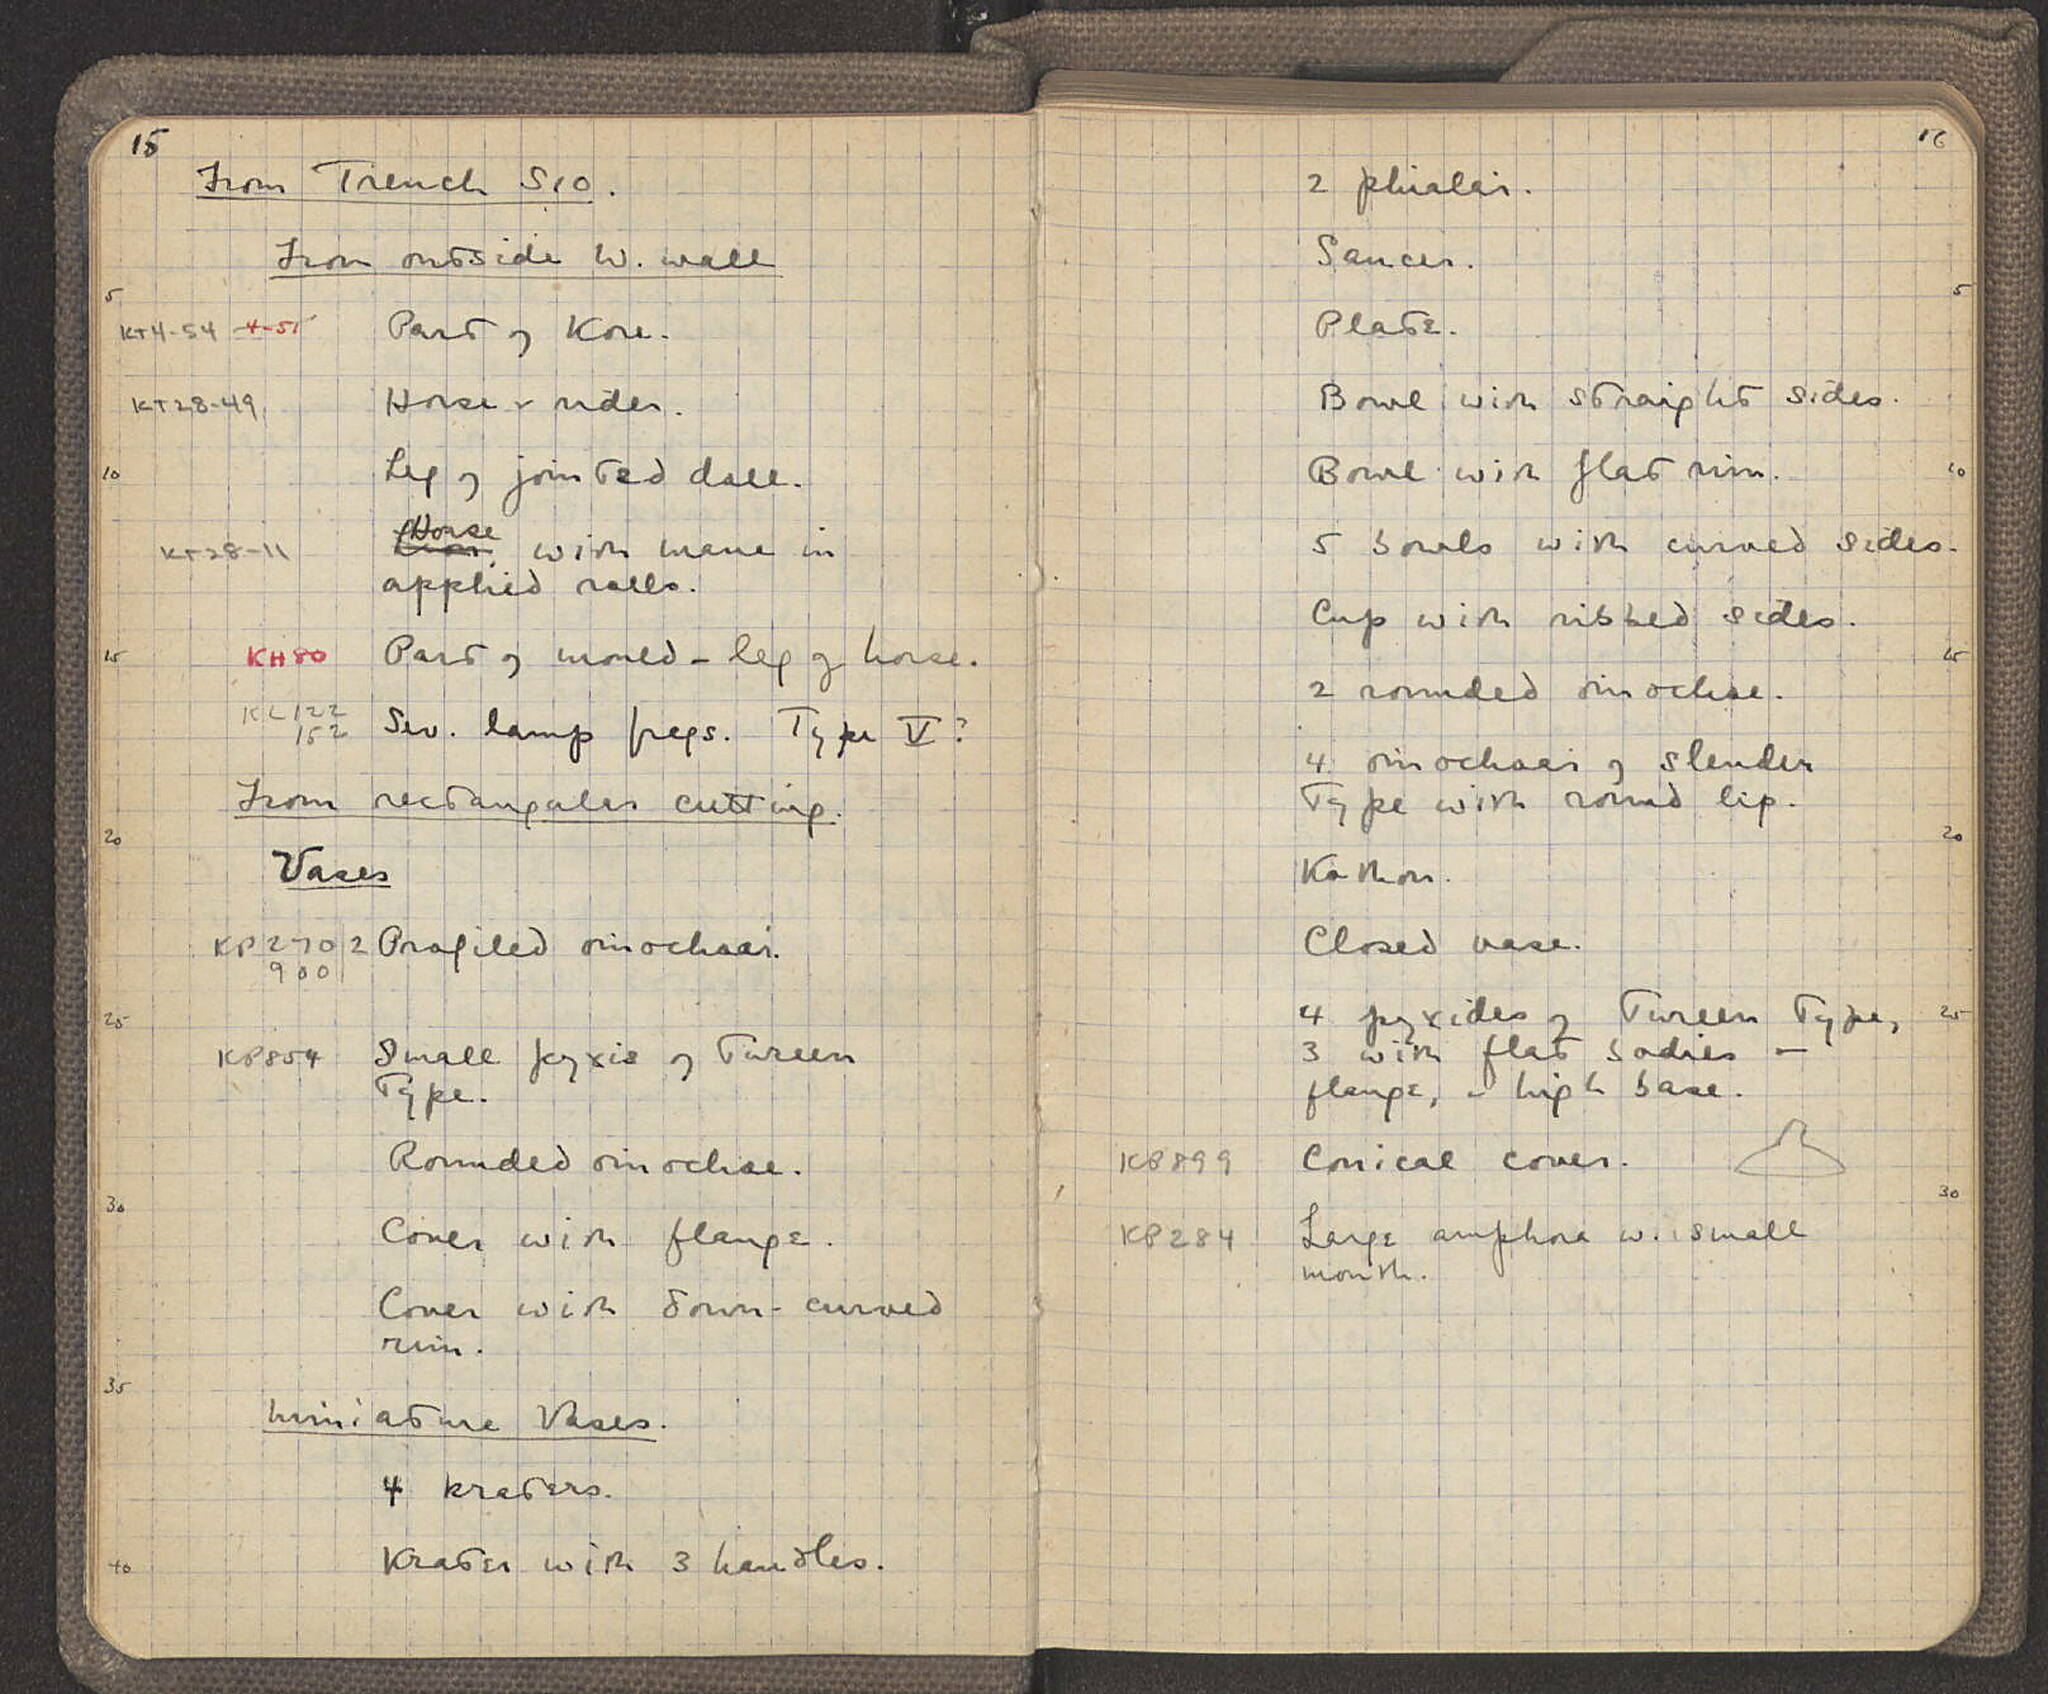 15
From Trench S10.
From outside W. wall
5
KT4-54 4-55 Part of Kore.
KT28-49 Horse + rider.
10 Leg of jointed doll.
Horse
KT28-11 , with mane in
applied rolls.
15 KH80 Part of mould - leg of horse.
KL122
152 Sev. lamp frgs. Type V?
From rectangular cutting.
20
Vases
KP270 2 Profiled oinochoai.
900
25
KP854 Small pyxis of Tureen
Type.
Rounded oinochoe.
30
Cover with flange.
Cover with down-curved
rim.
35
Miniature Vases.
4 kraters.
40 Krater with 3 handles.
16
2 phialai.
Saucer.
5
Plate.
Bowl with straight sides.
Bowl with flat rim. 10
5 bowls with curved sides.
Cup with ribbed sides.
15
2 rounded oinochoe.
4 oinochoai of slender
Type with round lip.
20
Kothon.
Closed vase.
4 pyxides of Tureen Type, 25
3 with flat bodies –
flange, – high base.
KP899 Conical cover.
30
KP284 Large amphora w. small
mouth.